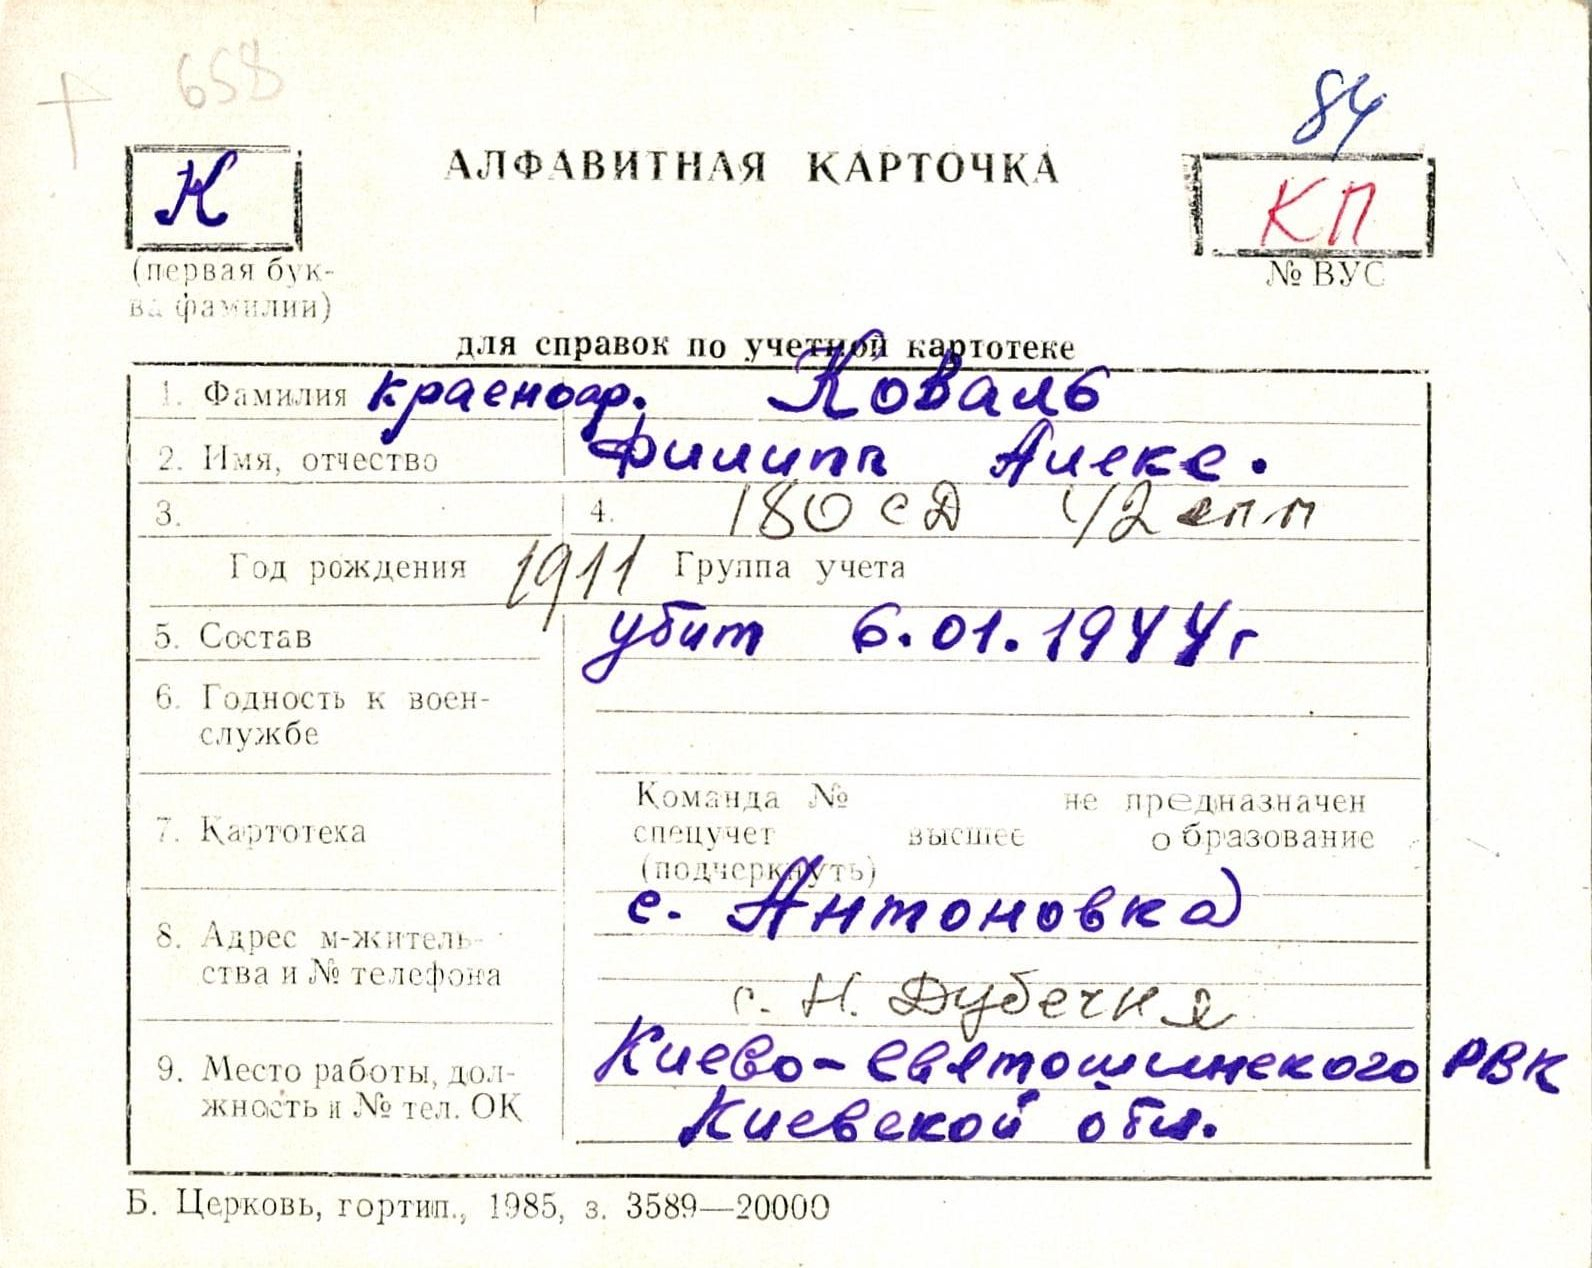 658
84
К
АЛФАВИТНАЯ КАРТОЧКА
КП
(первая бук-
ва фамилии)
№ ВУС
для справок по учетной картотеке
1. Фамилия красноар. Коваль
2. Имя, отчество Филипп Алекс.
3. 4. 180 сД 42 спп
Год рождения 1911 Группа учета
5. Состав убит 6.01.1944г
6. Годность к воен-
службе
Команда № не предназначен
7. Картотека спецучет высшее образование
(подчеркнуть)
с. Антоновка
8. Адрес м-житель-
ства и № телефона
с. Н. Дубечня
9. Место работы, дол-
жность и № тел. ОК
Киево-Святошинского РВК
Киевской обл.
Б. Церковь, гортип., 1985, з. 3589—20000